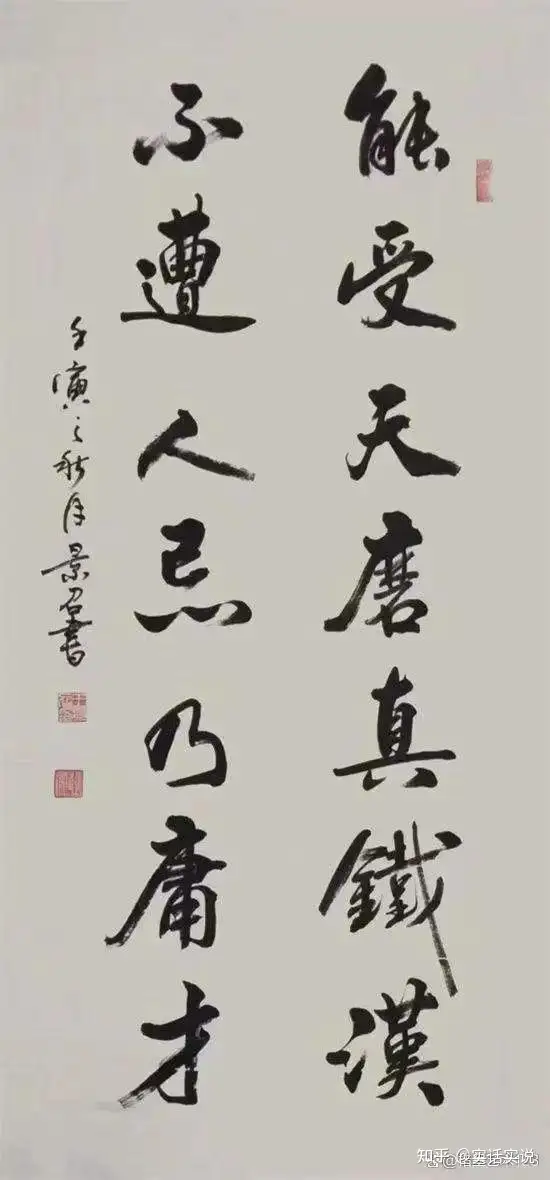 能受天磨真鐵漢
不遭人忌乃庸才
壬寅之秋月景召書
知乎 @实话实说